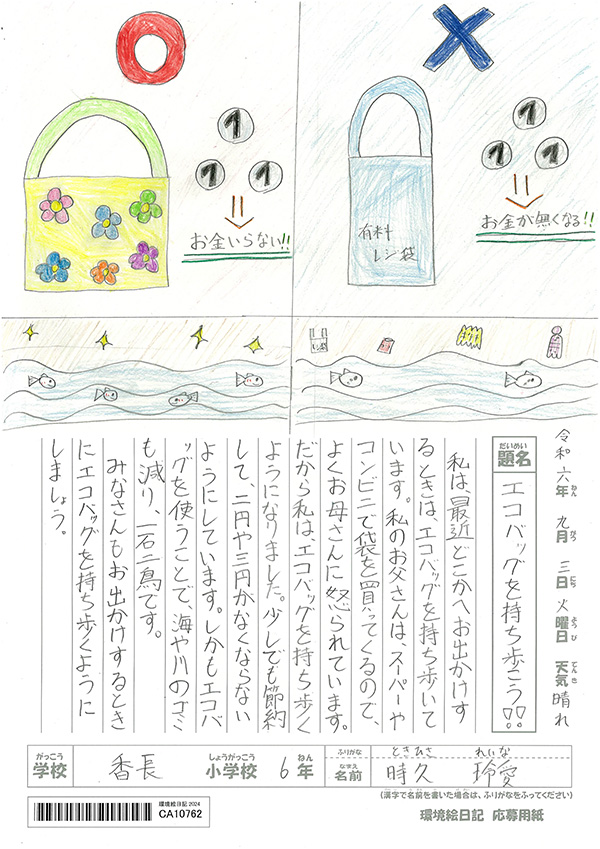 1
1
1
お金いらない!!
有料
レジ袋
1
1
1
お金が無くなる!!
レジ袋
令和六年 九月 三日 火曜日 天気 晴れ
ねん がつ にち ようび てんき
だいめい
題名
エコバッグを持ち歩こう!!
私は、最近どこかへお出かけす
るときは、エコバッグを持ち歩いて
います。私のお父さんは、スーパーや
コンビニで袋を買ってくるので、
よくお母さんに怒られています。
だから私は、エコバッグを持ち歩く
ようになりました。少しでも節約
して、二円や三円がなくならない
ようにしています。しかもエコバ
ッグを使うことで、海や川のゴミ
も減り、一石二鳥です。
みなさんもお出かけするとき
にエコバッグを持ち歩くように
しましょう。
がっこう
学校
香長
しょうがっこう
小学校
6
ねん
年
ふりがな
ときひさ れいな
なまえ
名前
時久 玲愛
(漢字で名前を書いた場合は、ふりがなをふってください)
環境絵日記 2024
CA10762
環境絵日記 応募用紙